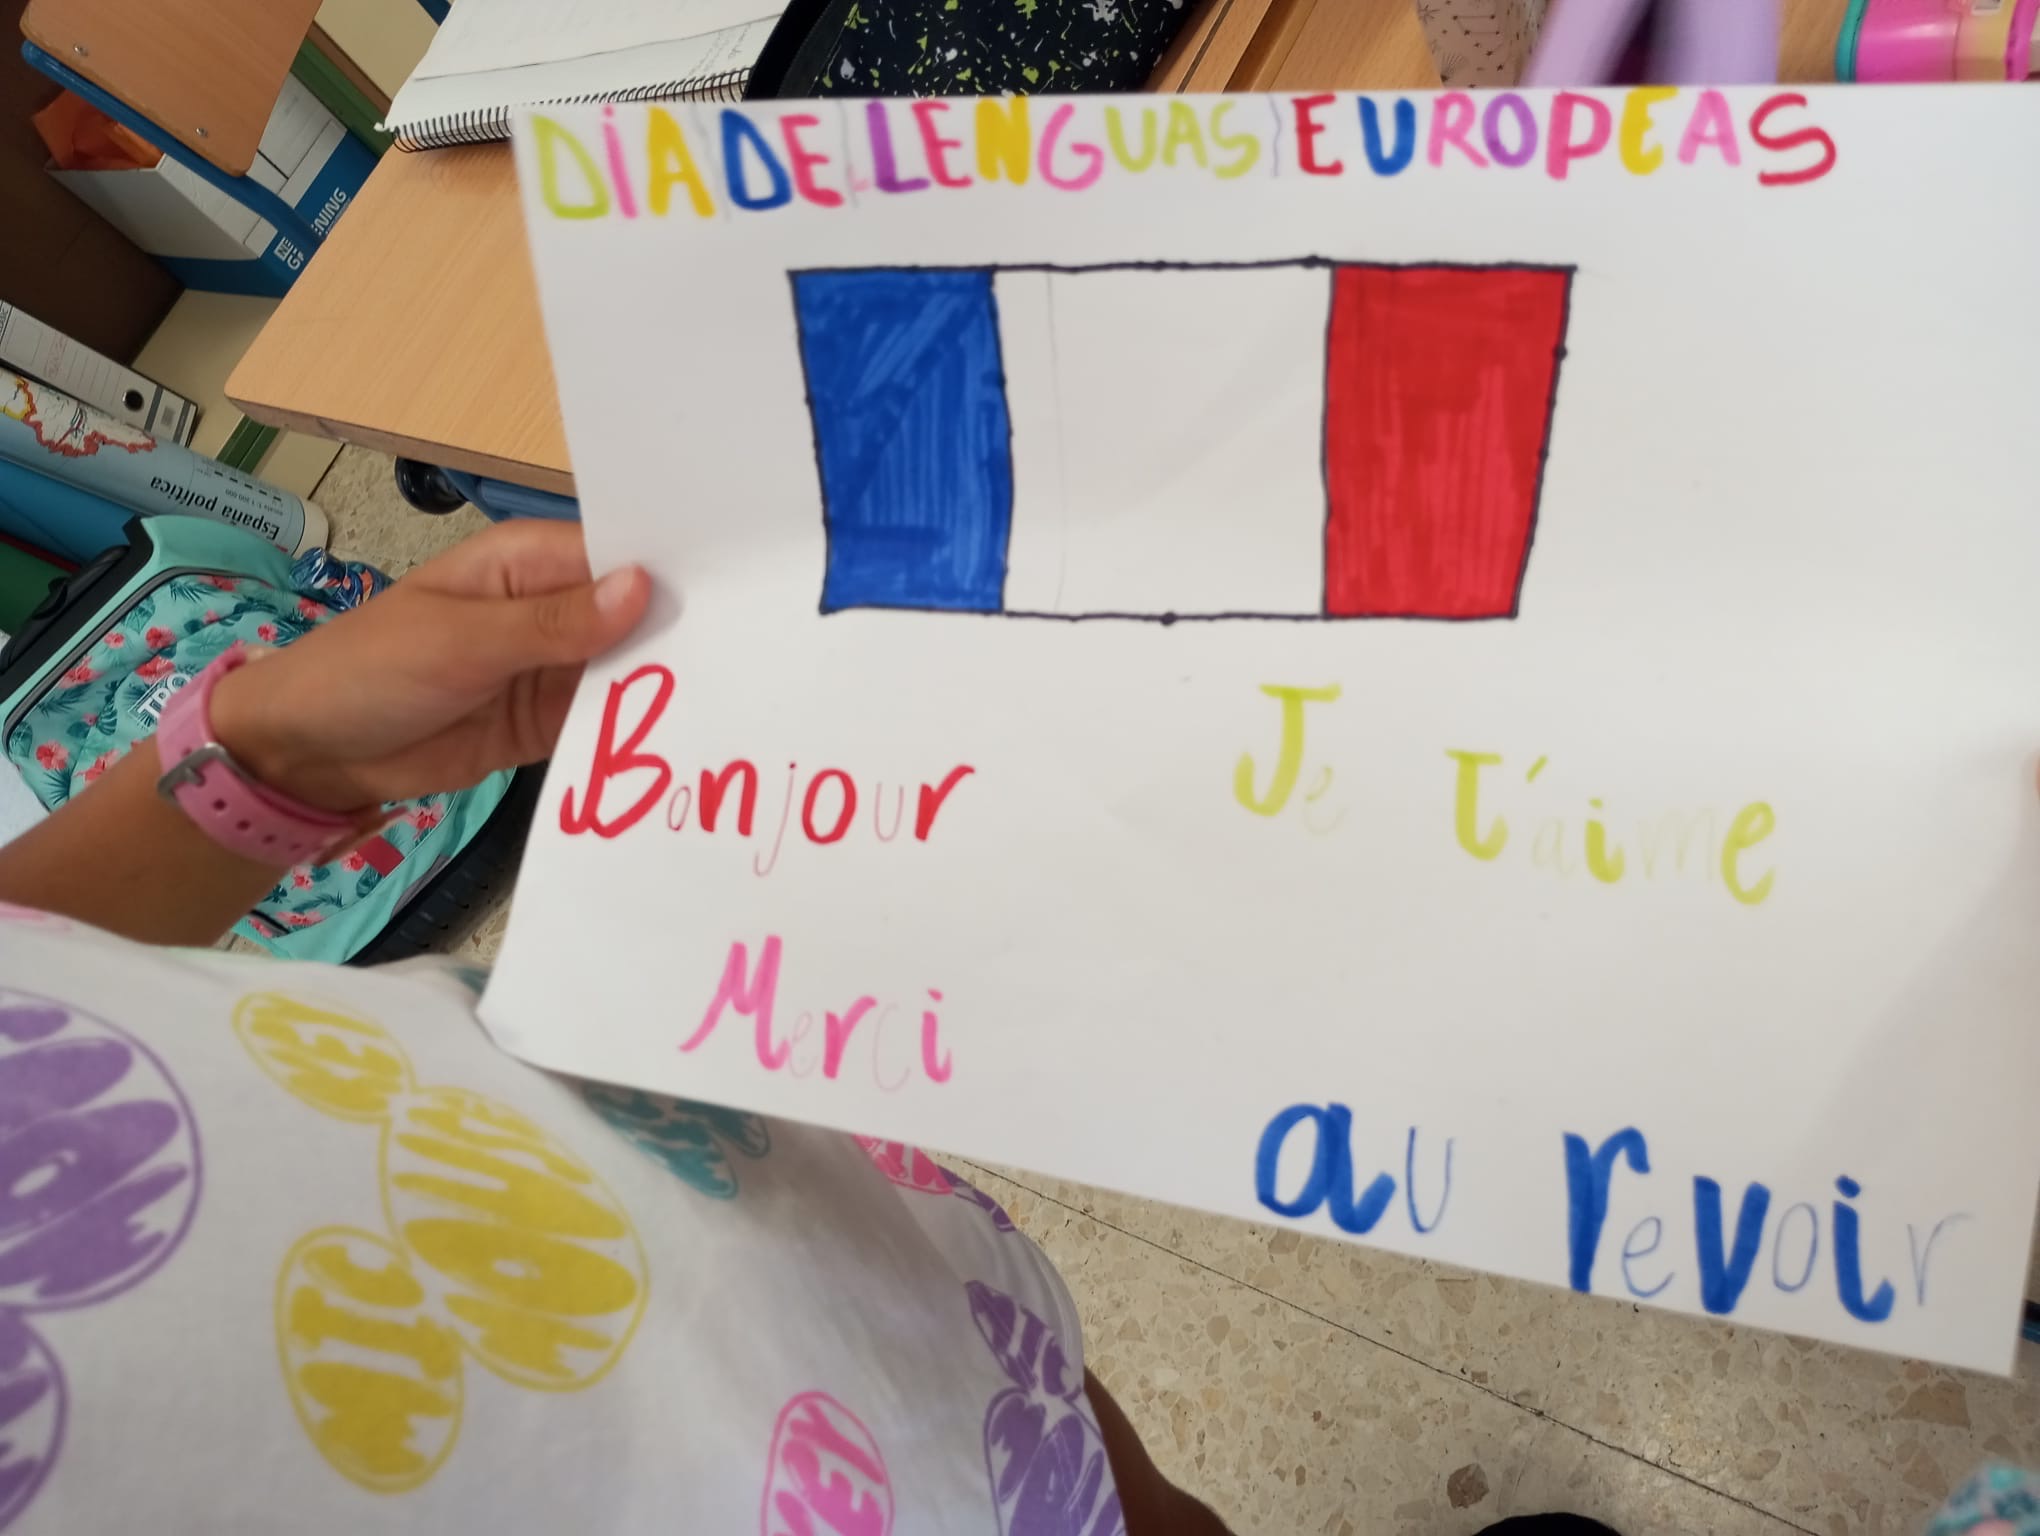 DÍA DE LENGUAS EUROPEAS
Bonjour
Je t'aime
Merci
au revoir
España política
MICKEY
MOUSE